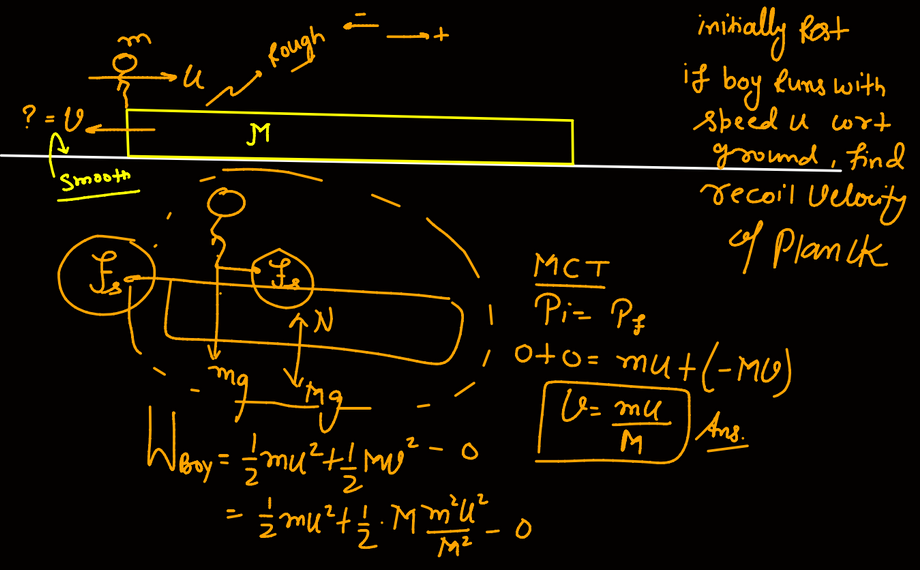 m
u
Rough
- +
? = v
M
Smooth
initially Rest
if boy Runs with
speed u wrt
ground, find
recoil Velocity
of Planck
fs
fs
N
mg
Mg
MCT
Pi = Pf
0+0 = mu+(-Mv)
v = mu/M Ans.
W_Boy = 1/2 mu² + 1/2 Mv² - 0
= 1/2 mu² + 1/2 . M m²u²/M² - 0